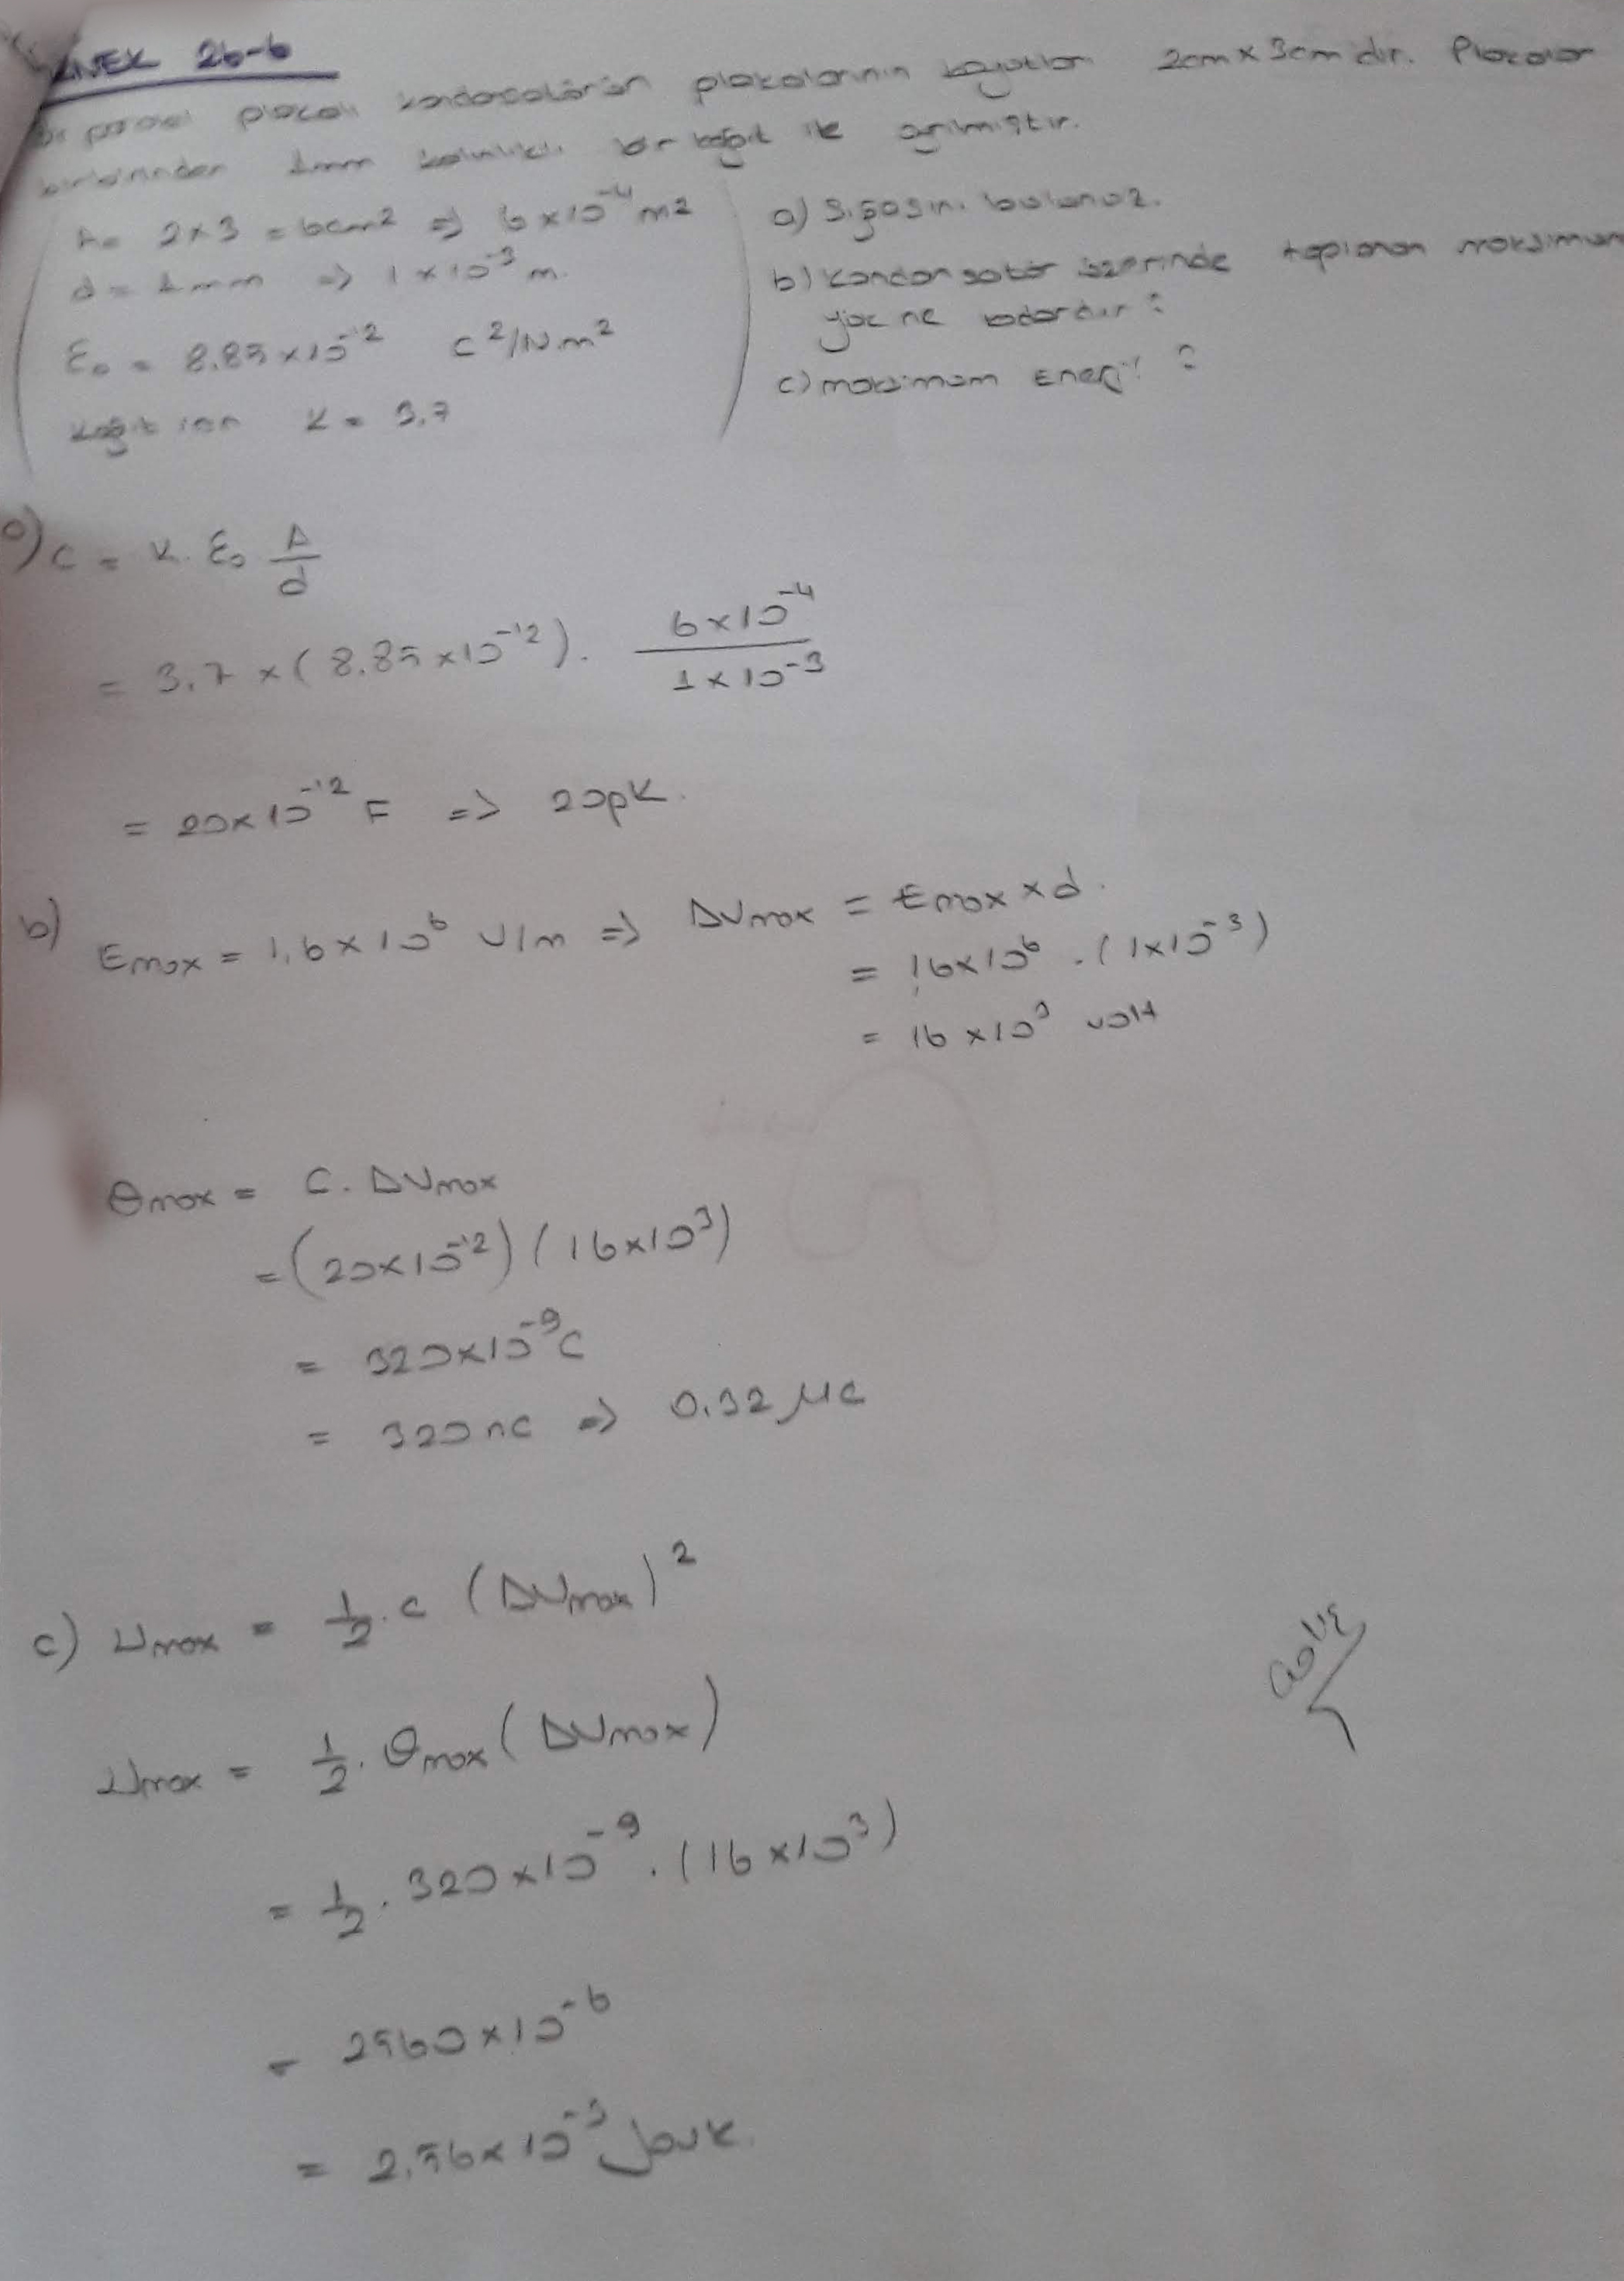 ÖRNEK 26-6
Bir paralel plakalı kondansatörün plakalarının boyutları 2cm x 3cm dir. Plakalar
birbirinden 1mm kalınlıklı bir kağıt ile ayrılmıştır.
A = 2x3 = 6cm² => 6x10⁻⁴ m²
d = 1mm => 1x10⁻³ m.
ε₀ = 8.85x10⁻¹² C²/N.m²
kağıt için K = 3,7
a) Sığasını bulunuz.
b) Kondansatör üzerinde toplanan maksimum
yük ne kadardır?
c) maksimum Enerji?
a) C = K. ε₀ A/d
= 3,7 x (8.85x10⁻¹²). 6x10⁻⁴ / 1x10⁻³
= 20x10⁻¹² F => 20pK.
b) Emax = 1,6x10⁶ V/m => ΔVmax = Emax x d.
= 16x10⁶ . (1x10⁻³)
= 16x10³ volt
Qmax = C. ΔVmax
= (20x10⁻¹²) (16x10³)
= 320x10⁻⁹ C
= 320nC => 0.32 μC
c) Umax = 1/2 . C (ΔVmax)²
Umax = 1/2 . Qmax (ΔVmax)
= 1/2 . 320x10⁻⁹ . (16x10³)
= 2560x10⁻⁶
= 2,56x10⁻³ Joule.